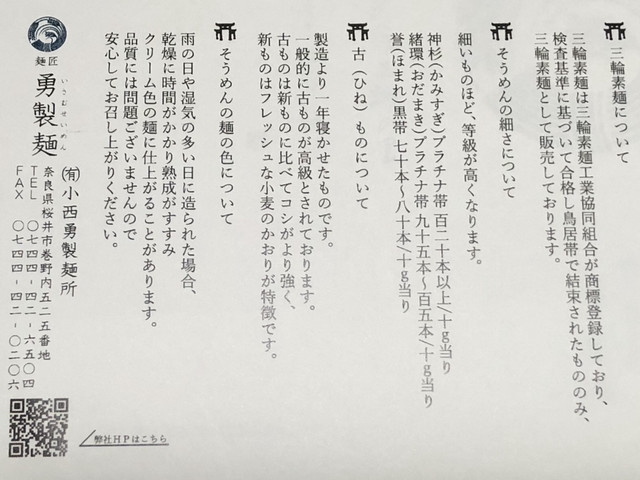 三輪素麺について
三輪素麺は三輪素麺工業協同組合が商標登録しており、
検査基準に基づいて合格し鳥居帯で結束されたもののみ、
三輪素麺として販売しております。
そうめんの細さについて
細いものほど、等級が高くなります。
神杉(かみすぎ)プラチナ帯 百二十本以上/十g当り
緒環(おだまき)プラチナ帯 九十五本〜百五本/十g当り
誉(ほまれ)黒帯 七十本〜八十本/十g当り
古(ひね)ものについて
製造より一年寝かせたものです。
一般的に古ものが高級とされております。
古ものは新ものに比べてコシがより強く、
新ものはフレッシュな小麦のかおりが特徴です。
そうめんの麺の色について
雨の日や湿気の多い日に造られた場合、
乾燥に時間がかかり熟成がすすみ
クリーム色の麺に仕上がることがあります。
品質には問題ございませんので
安心してお召し上がりください。
麺匠
勇製麺
いさむせいめん
(有)小西勇製麺所
奈良県桜井市巻野内五二五番地
TEL 〇七四四-四二-六五〇四
FAX 〇七四四-四二-〇二〇六
弊社HPはこちら